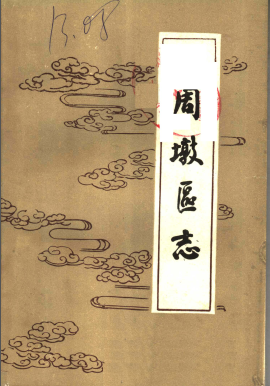 周墩區志